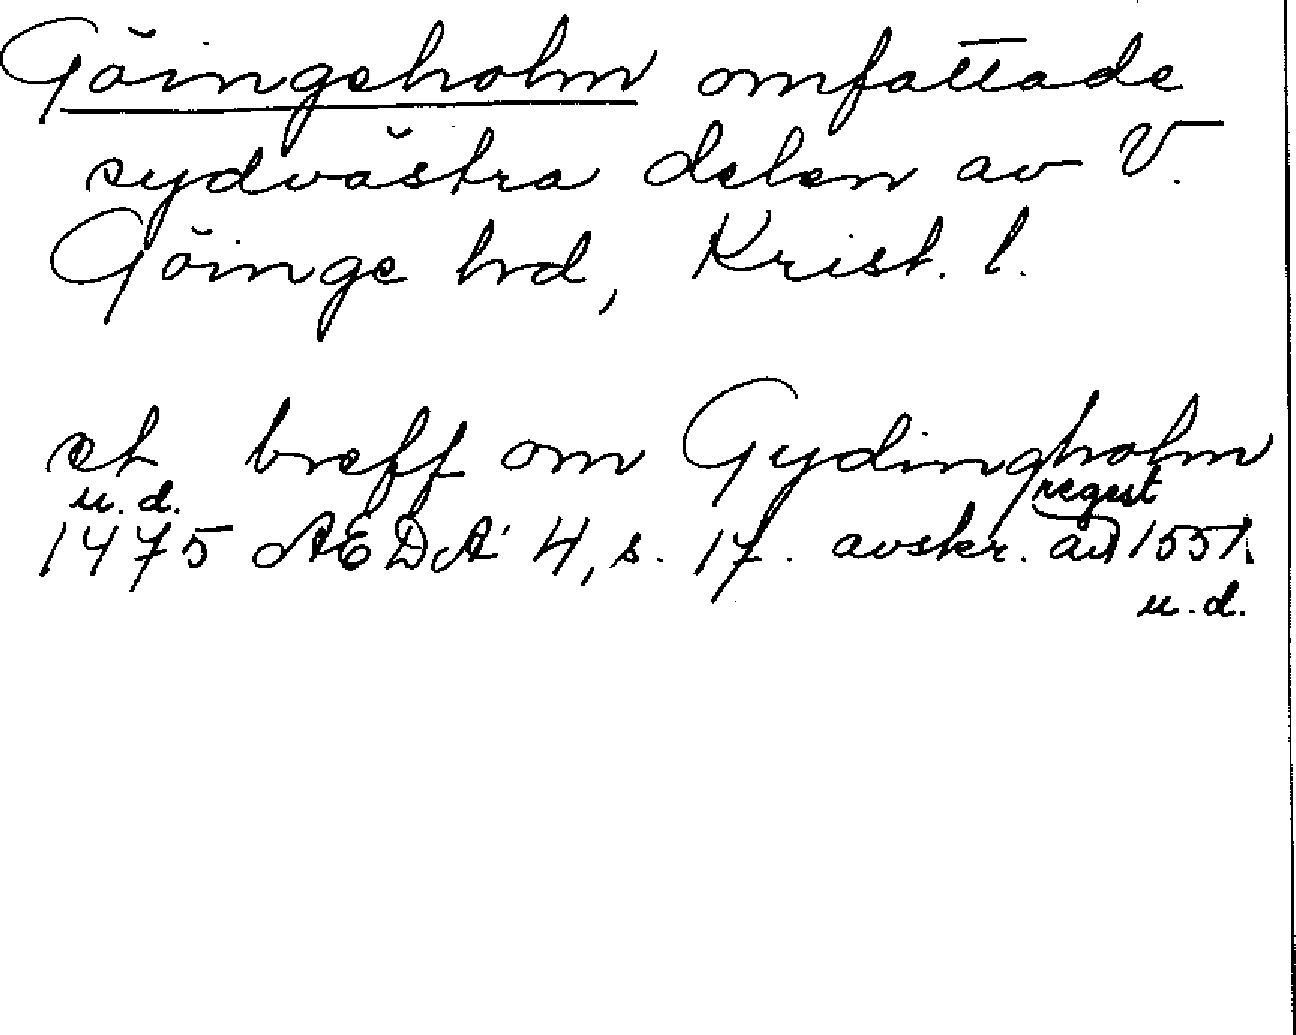 Göingeholm omfattade
sydvästra delen av V.
Göinge hrd, Krist. l.
et breff om Gydingholm
u.d. regest
1475 AEDA 4, s. 17. avskr. av 1551.
u.d.